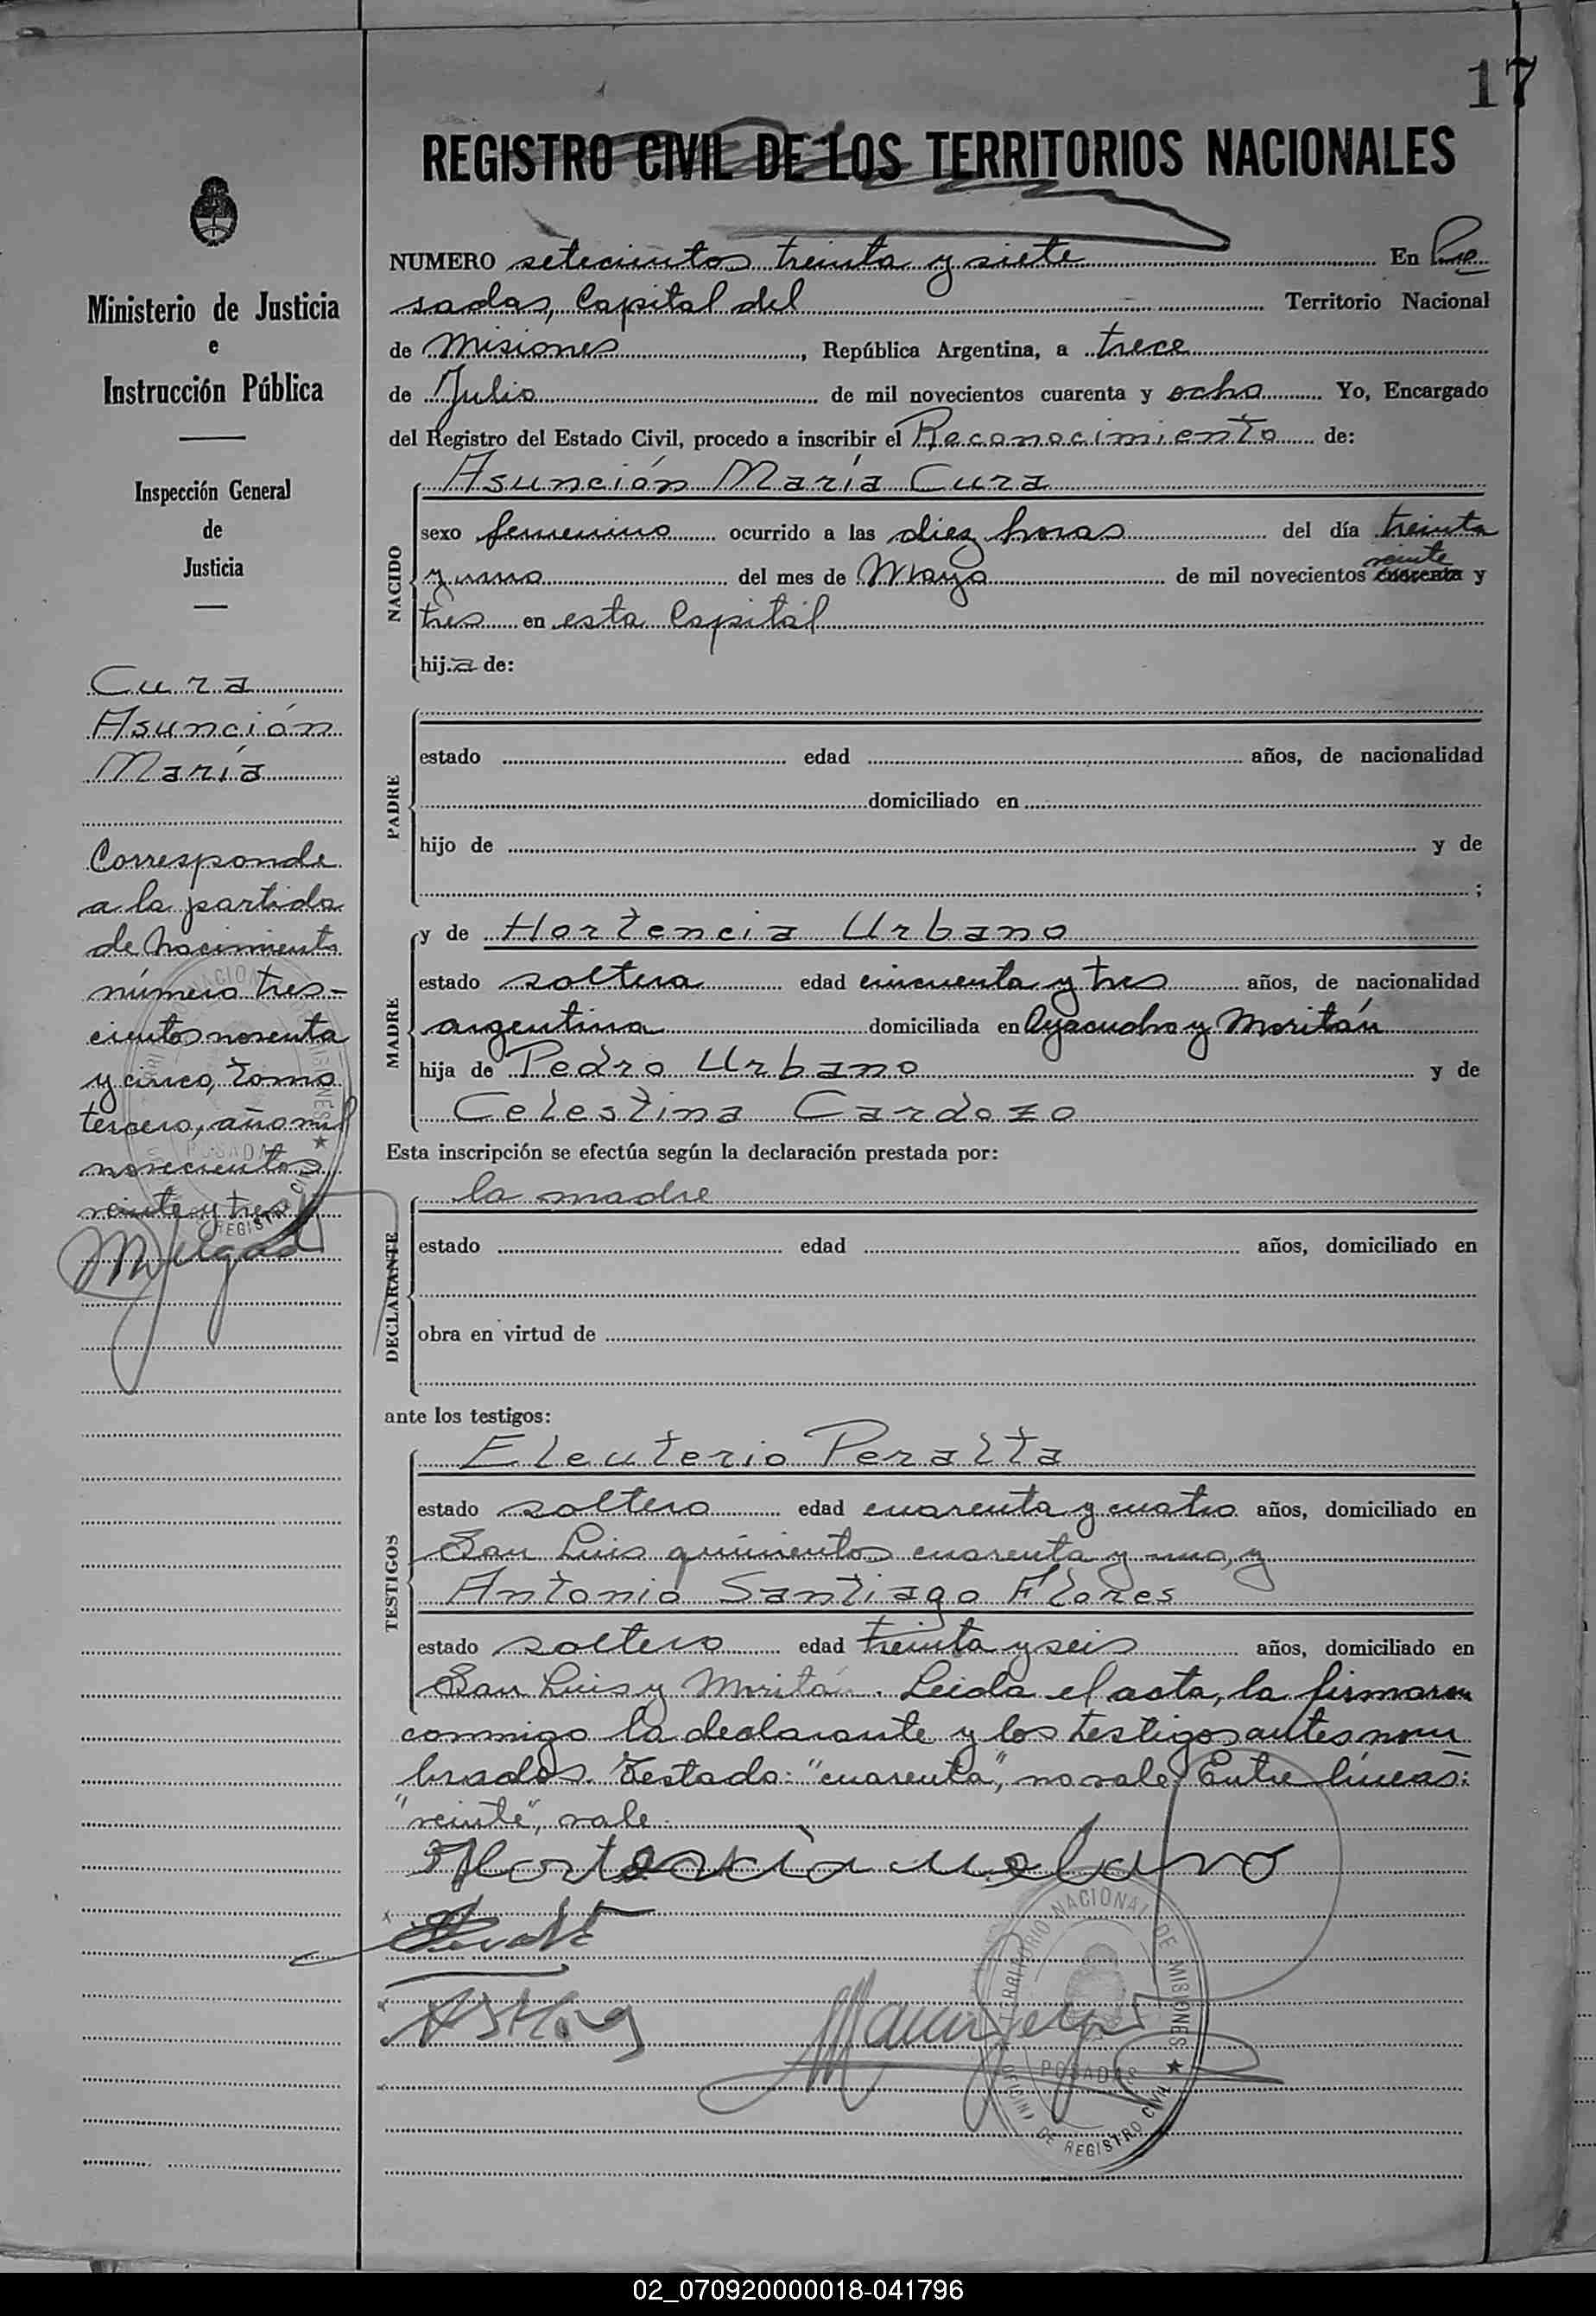 17
REGISTRO CIVIL DE LOS TERRITORIOS NACIONALES
Ministerio de Justicia
e
Instrucción Pública
Inspección General
de
Justicia
Cura
Asunción
María
Corresponde
a la partida
de Nacimiento
número tres-
cientos noventa
y cinco, tomo
tercero, año mil
novecientos
veinte y tres
NUMERO setecientos treinta y siete En Po
sadas, Capital del Territorio Nacional
de Misiones, República Argentina, a trece
de Julio de mil novecientos cuarenta y ocho Yo, Encargado
del Registro del Estado Civil, procedo a inscribir el Reconocimiento de:
NACIDO
Asunción María Cura
sexo femenino ocurrido a las diez horas del día treinta
veinte
y uno del mes de Mayo de mil novecientos cuarenta y
tres en esta Capital
hija de:
PADRE
estado edad años, de nacionalidad
domiciliado en
hijo de y de
;
MADRE
y de Hortencia Urbano
estado soltera edad cincuenta y tres años, de nacionalidad
argentina domiciliada en Ayacucho y Moritán
hija de Pedro Urbano y de
Celestina Cardozo
Esta inscripción se efectúa según la declaración prestada por:
DECLARANTE
la madre
estado edad años, domiciliado en
obra en virtud de
ante los testigos:
TESTIGOS
Eleuterio Peralta
estado soltero edad cuarenta y cuatro años, domiciliado en
San Luis quinientos cuarenta y uno, y
Antonio Santiago Flores
estado soltero edad treinta y seis años, domiciliado en
San Luis y Moritán. Leída el acta, la firmaron
conmigo la declarante y los testigos antes nom
brados. Testado: "cuarenta", no vale. Entre líneas:
"veinte", vale
Hortencia urbano
TERRITORIO NACIONAL DE MISIONES
POSADAS
OFICINA DE REGISTRO CIVIL
02_070920000018-041796